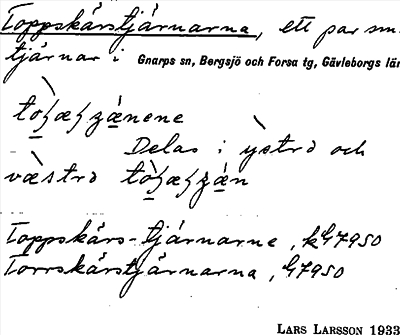 Toppskärstjärnarna, ett par sm
tjärnar i Gnarps sn, Bergsjö och Forsa tg, Gävleborgs län
Delas i ystrə och
væstrə
Toppskärs-tjärnarne, k G7950
Torrskärstjärnarna, G7950
LARS LARSSON 1933